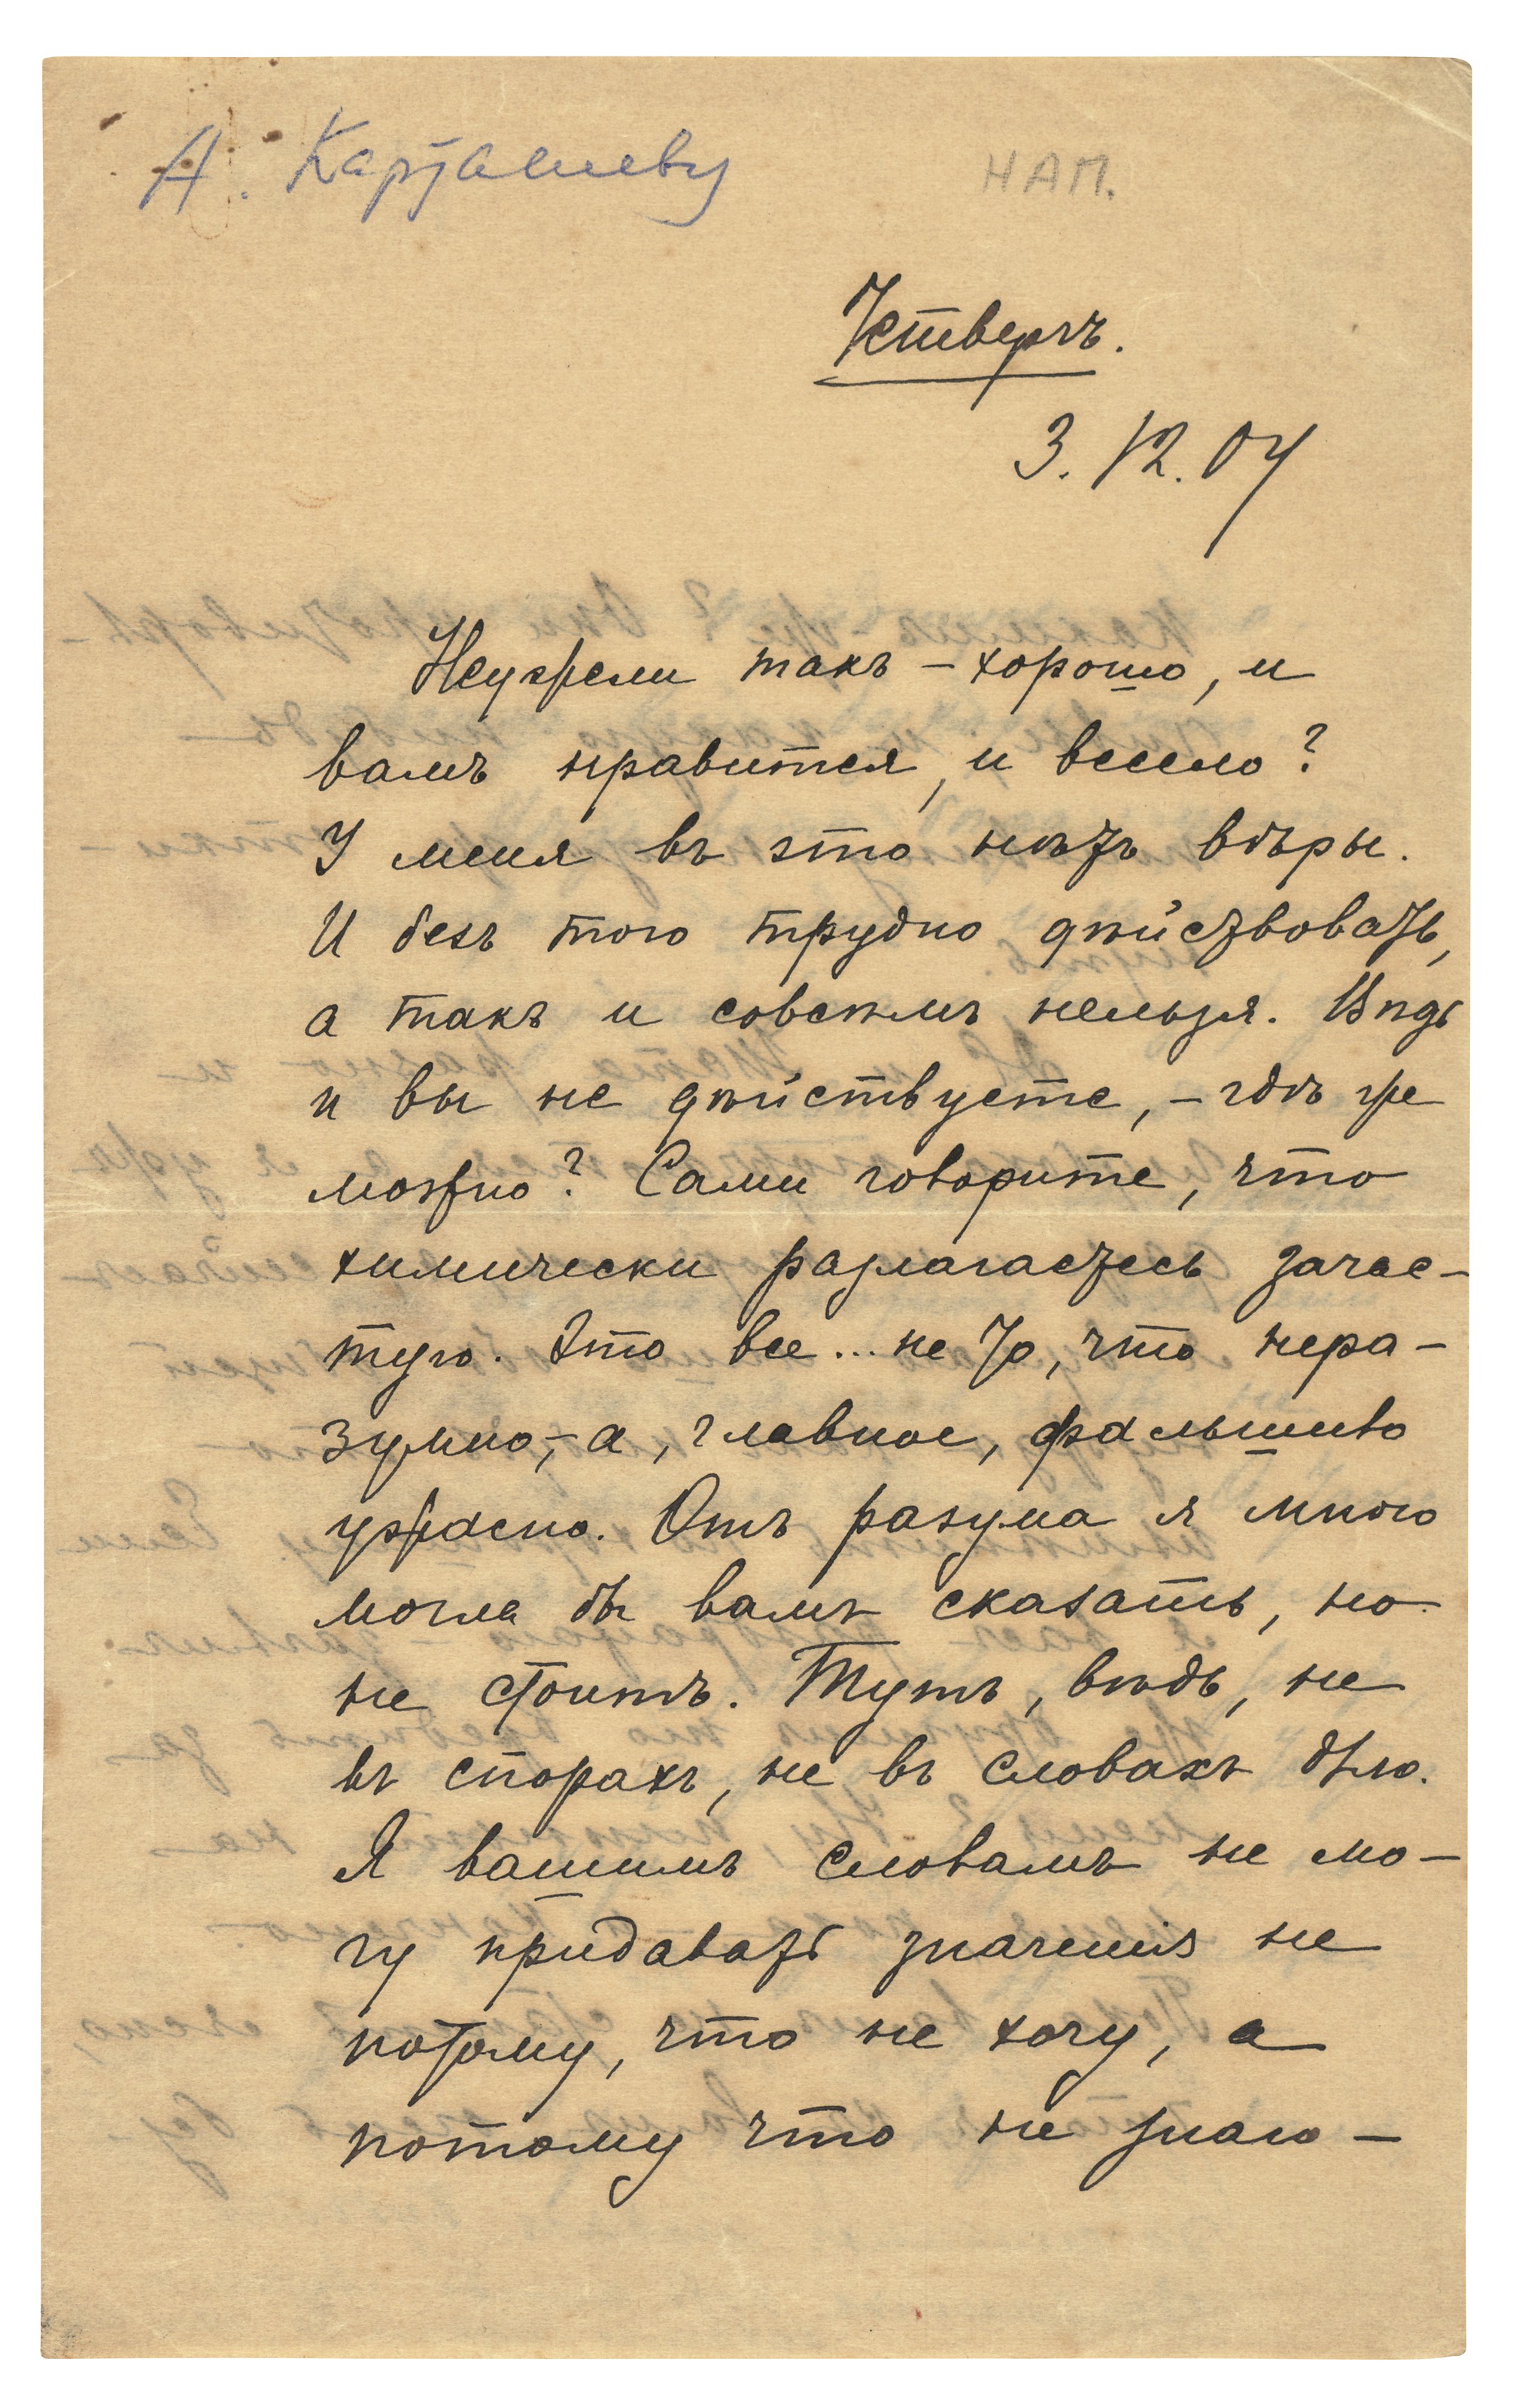 А. Карташеву
НАП.
Четвергъ.
3. 12. 04
Неужели такъ – хорошо, и
вамъ нравится, и весело?
У меня въ это нѣтъ вѣры.
И безъ того трудно дѣйствовать,
а такъ и совсѣмъ нельзя. Вѣдь
и вы не дѣйствуете, – гдѣ же
можно? Сами говорите, что
химически разлагаетесь зачас–
тую. Это все... не то, что нера–
зумно, – а, главное, фальшиво
ужасно. Отъ разума я много
могла бы вамъ сказать, но
не стоитъ. Тутъ, вѣдь, не
въ спорахъ, не въ словахъ дѣло.
Я вашимъ словамъ не мо–
гу придавать значенія не
потому, что не хочу, а
потому что не знаю –